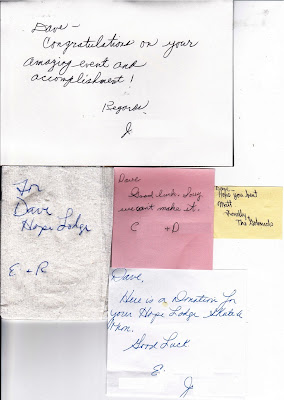 Dave -
Congratulations on your
amazing event and
accomplishment!
Regards,
J
For
Dave
Hope Lodge
E + R
Dave
Good luck. Sorry
we cant make it.
C + D
Hope you beat
Matt
Dave,
Here is a Donation for
your Hope Lodge Skate a
thon.
Good Luck
E.
J